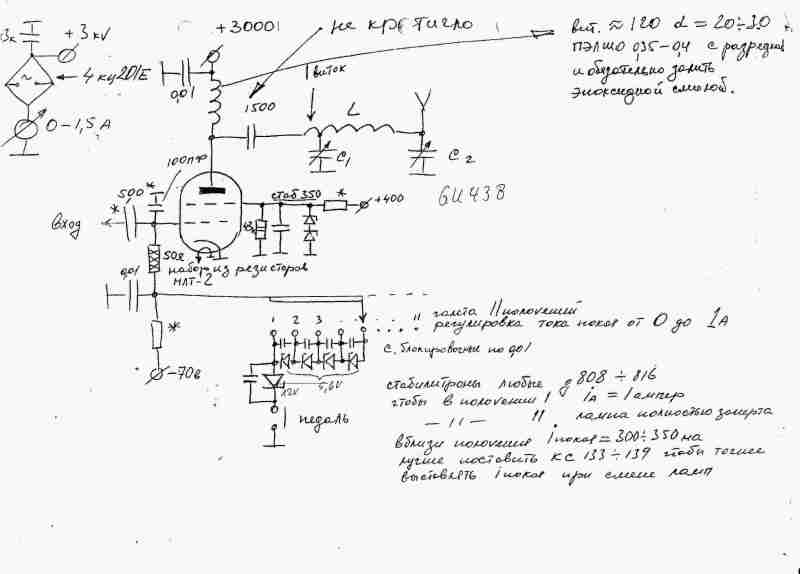 +3000 В
не критично
вит. ≈ 120 d = 20÷30
ПЭЛШО 0,35-0,4 с разрядкой
и обязательно залить
эпоксидной смолой.
3к
+3 kV
4 кц 201Е
0-1,5 А
0,01
1500
1 виток
L
C1
C2
100пф
500 *
*
Вход
стаб 350
*
+400
ГИ43Б
50Ω
набор из резисторов
МЛТ-2
0,01
*
-70в
1 2 3
галета 11 положений
регулировка тока покоя от 0 до 1А
с. блокировочные по 0,01
12V
5,6V
педаль
стабилитроны любые Д 808 ÷ 816
чтобы в положении 1 iA = 1 ампер
— 11 — 11 лампа полностью заперта
вблизи положения iпокоя = 300÷350 ма
лучше поставить КС 133÷139 чтобы точнее
выставлять iпокоя при смене ламп